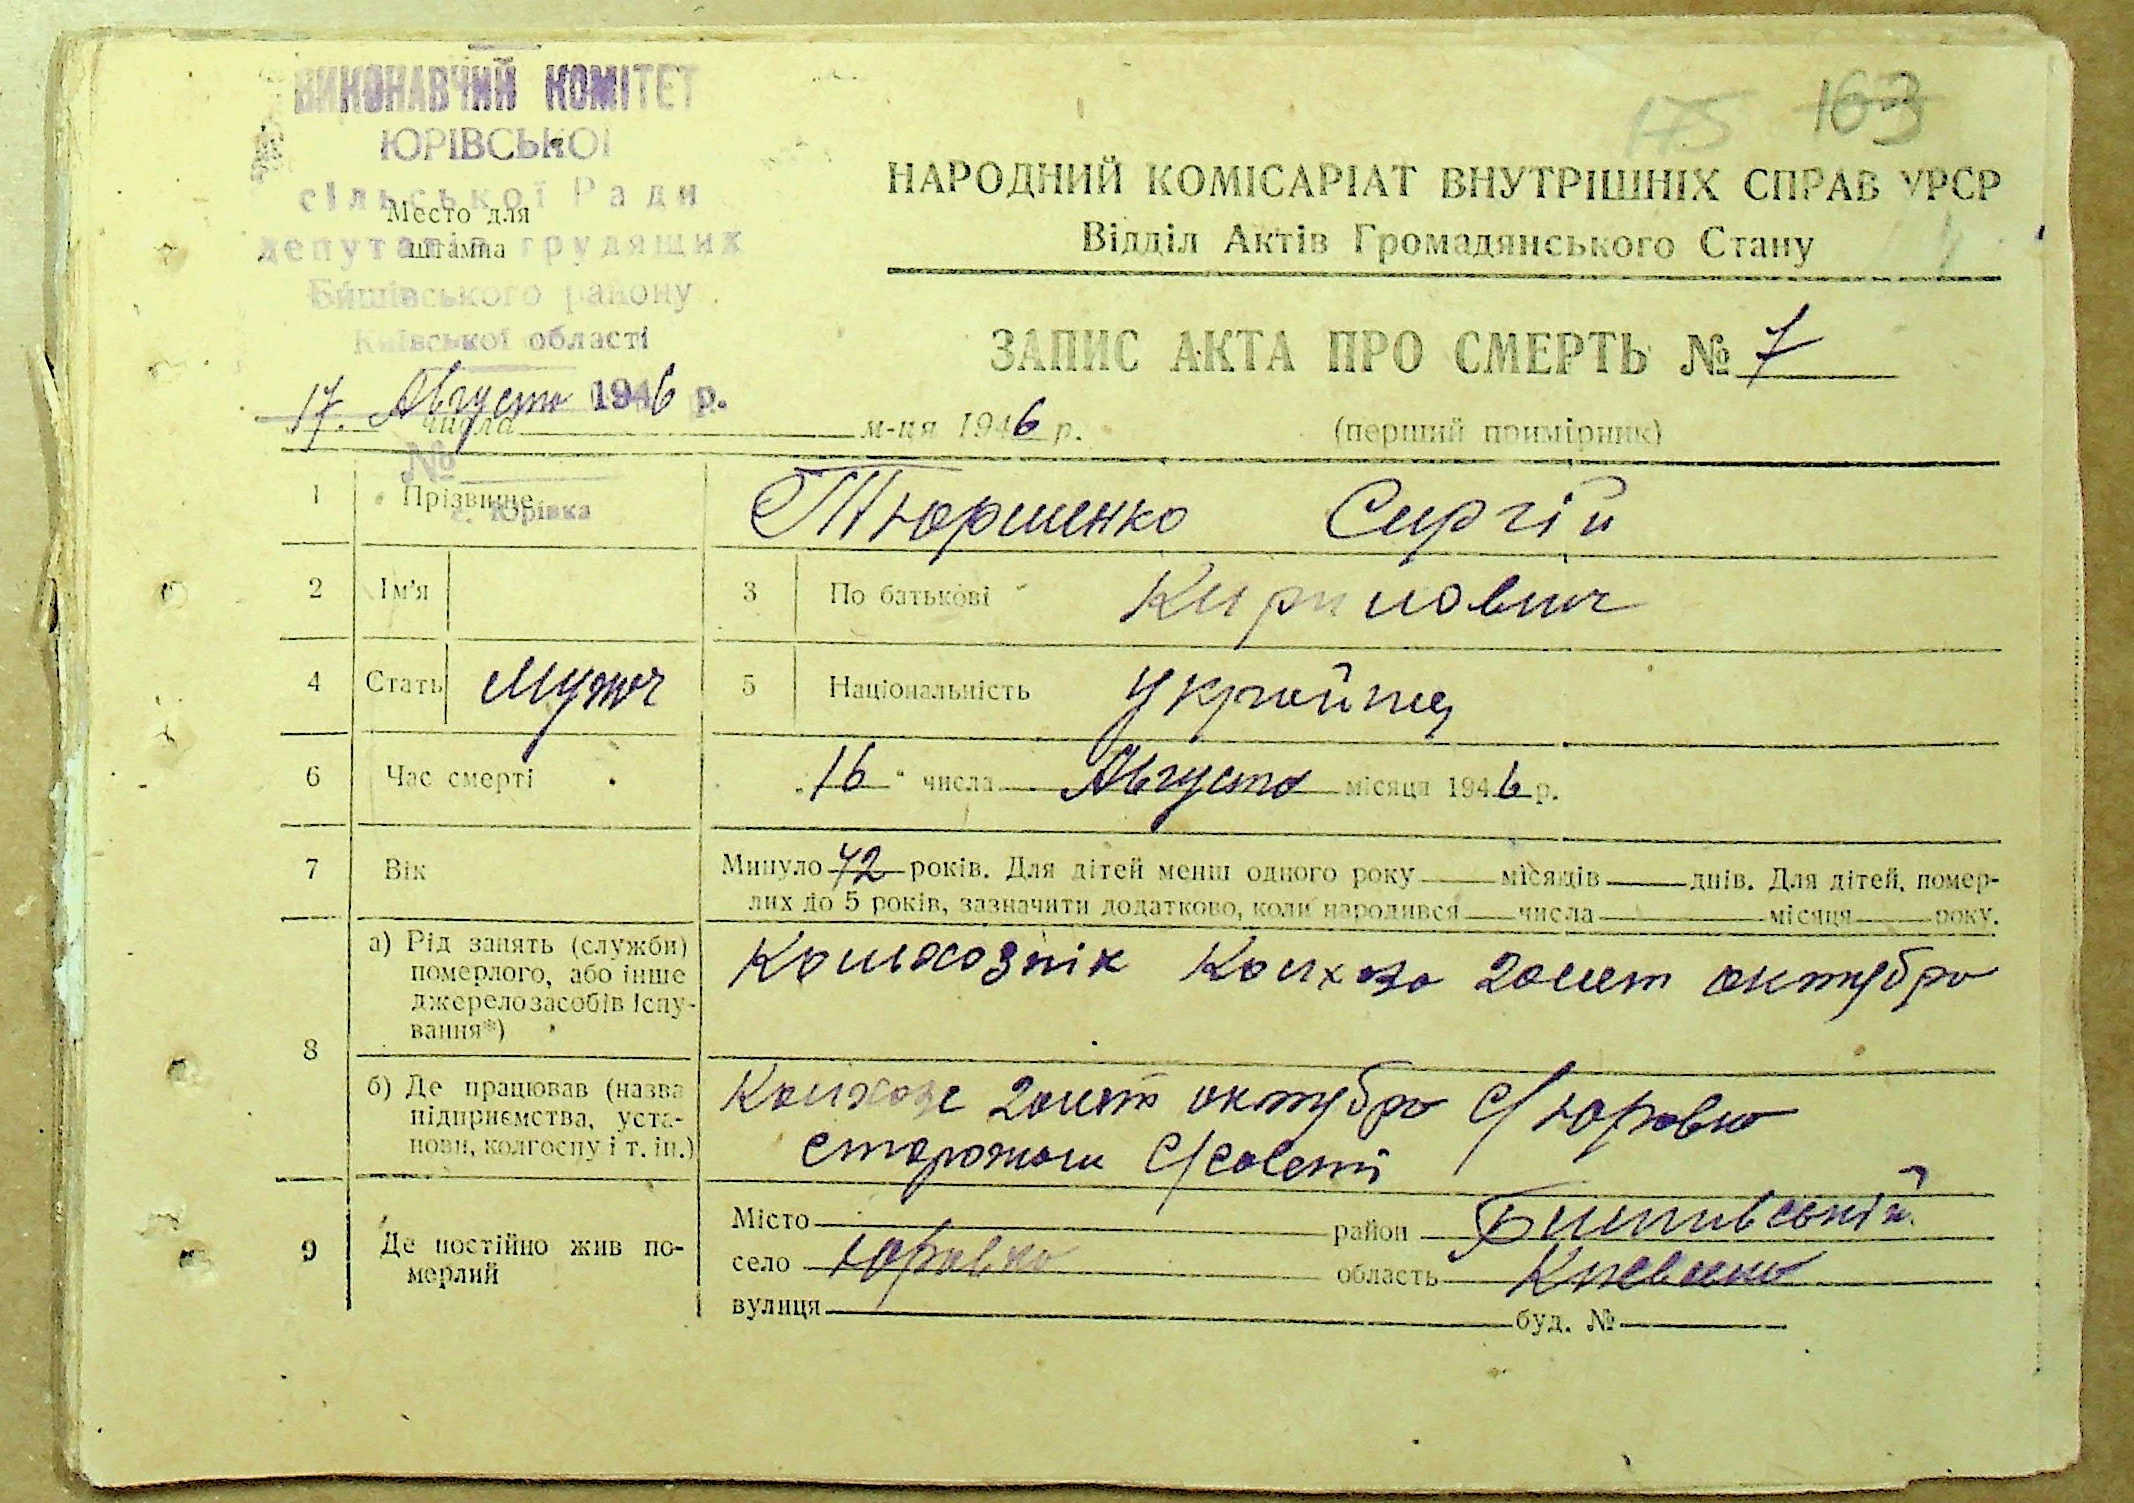 175 163
ВИКОНАВЧИЙ КОМІТЕТ
ЮРІВСЬКОЇ
сільської Ради
депутатів трудящих
Бишівського району
Київської області
17. Августа 1946 р.
№
с. Юрівка
Место для
штампа
НАРОДНИЙ КОМІСАРІАТ ВНУТРІШНІХ СПРАВ УРСР
Відділ Актів Громадянського Стану
ЗАПИС АКТА ПРО СМЕРТЬ № 7
числа м-ця 1946 р. (перший примірник)
1 Прізвище Тюршенко Сиргій
2 Ім'я 3 По батькові Кирилович
4 Стать Мужч 5 Національність Україйнец
6 Час смерті 16 числа Августа місяця 1946 р.
7 Вік Минуло 72 років. Для дітей менш одного року місяців днів. Для дітей, помер-
лих до 5 років, зазначити додатково, коли народився числа місяця року.
8 а) Рід занять (служби)
померлого, або інше
джерело засобів існу-
вання*)
Колхознік Колхоза 20 лет октубра
б) Де працював (назва
підприємства, уста-
нови, колгоспу і т. ін.)
Колхозе 20 лет октубра С/Юровка
сторожом С/советі
9 Де постійно жив по-
мерлий
Місто район Бишивський
село Юровка область Киевска
вулиця буд. №